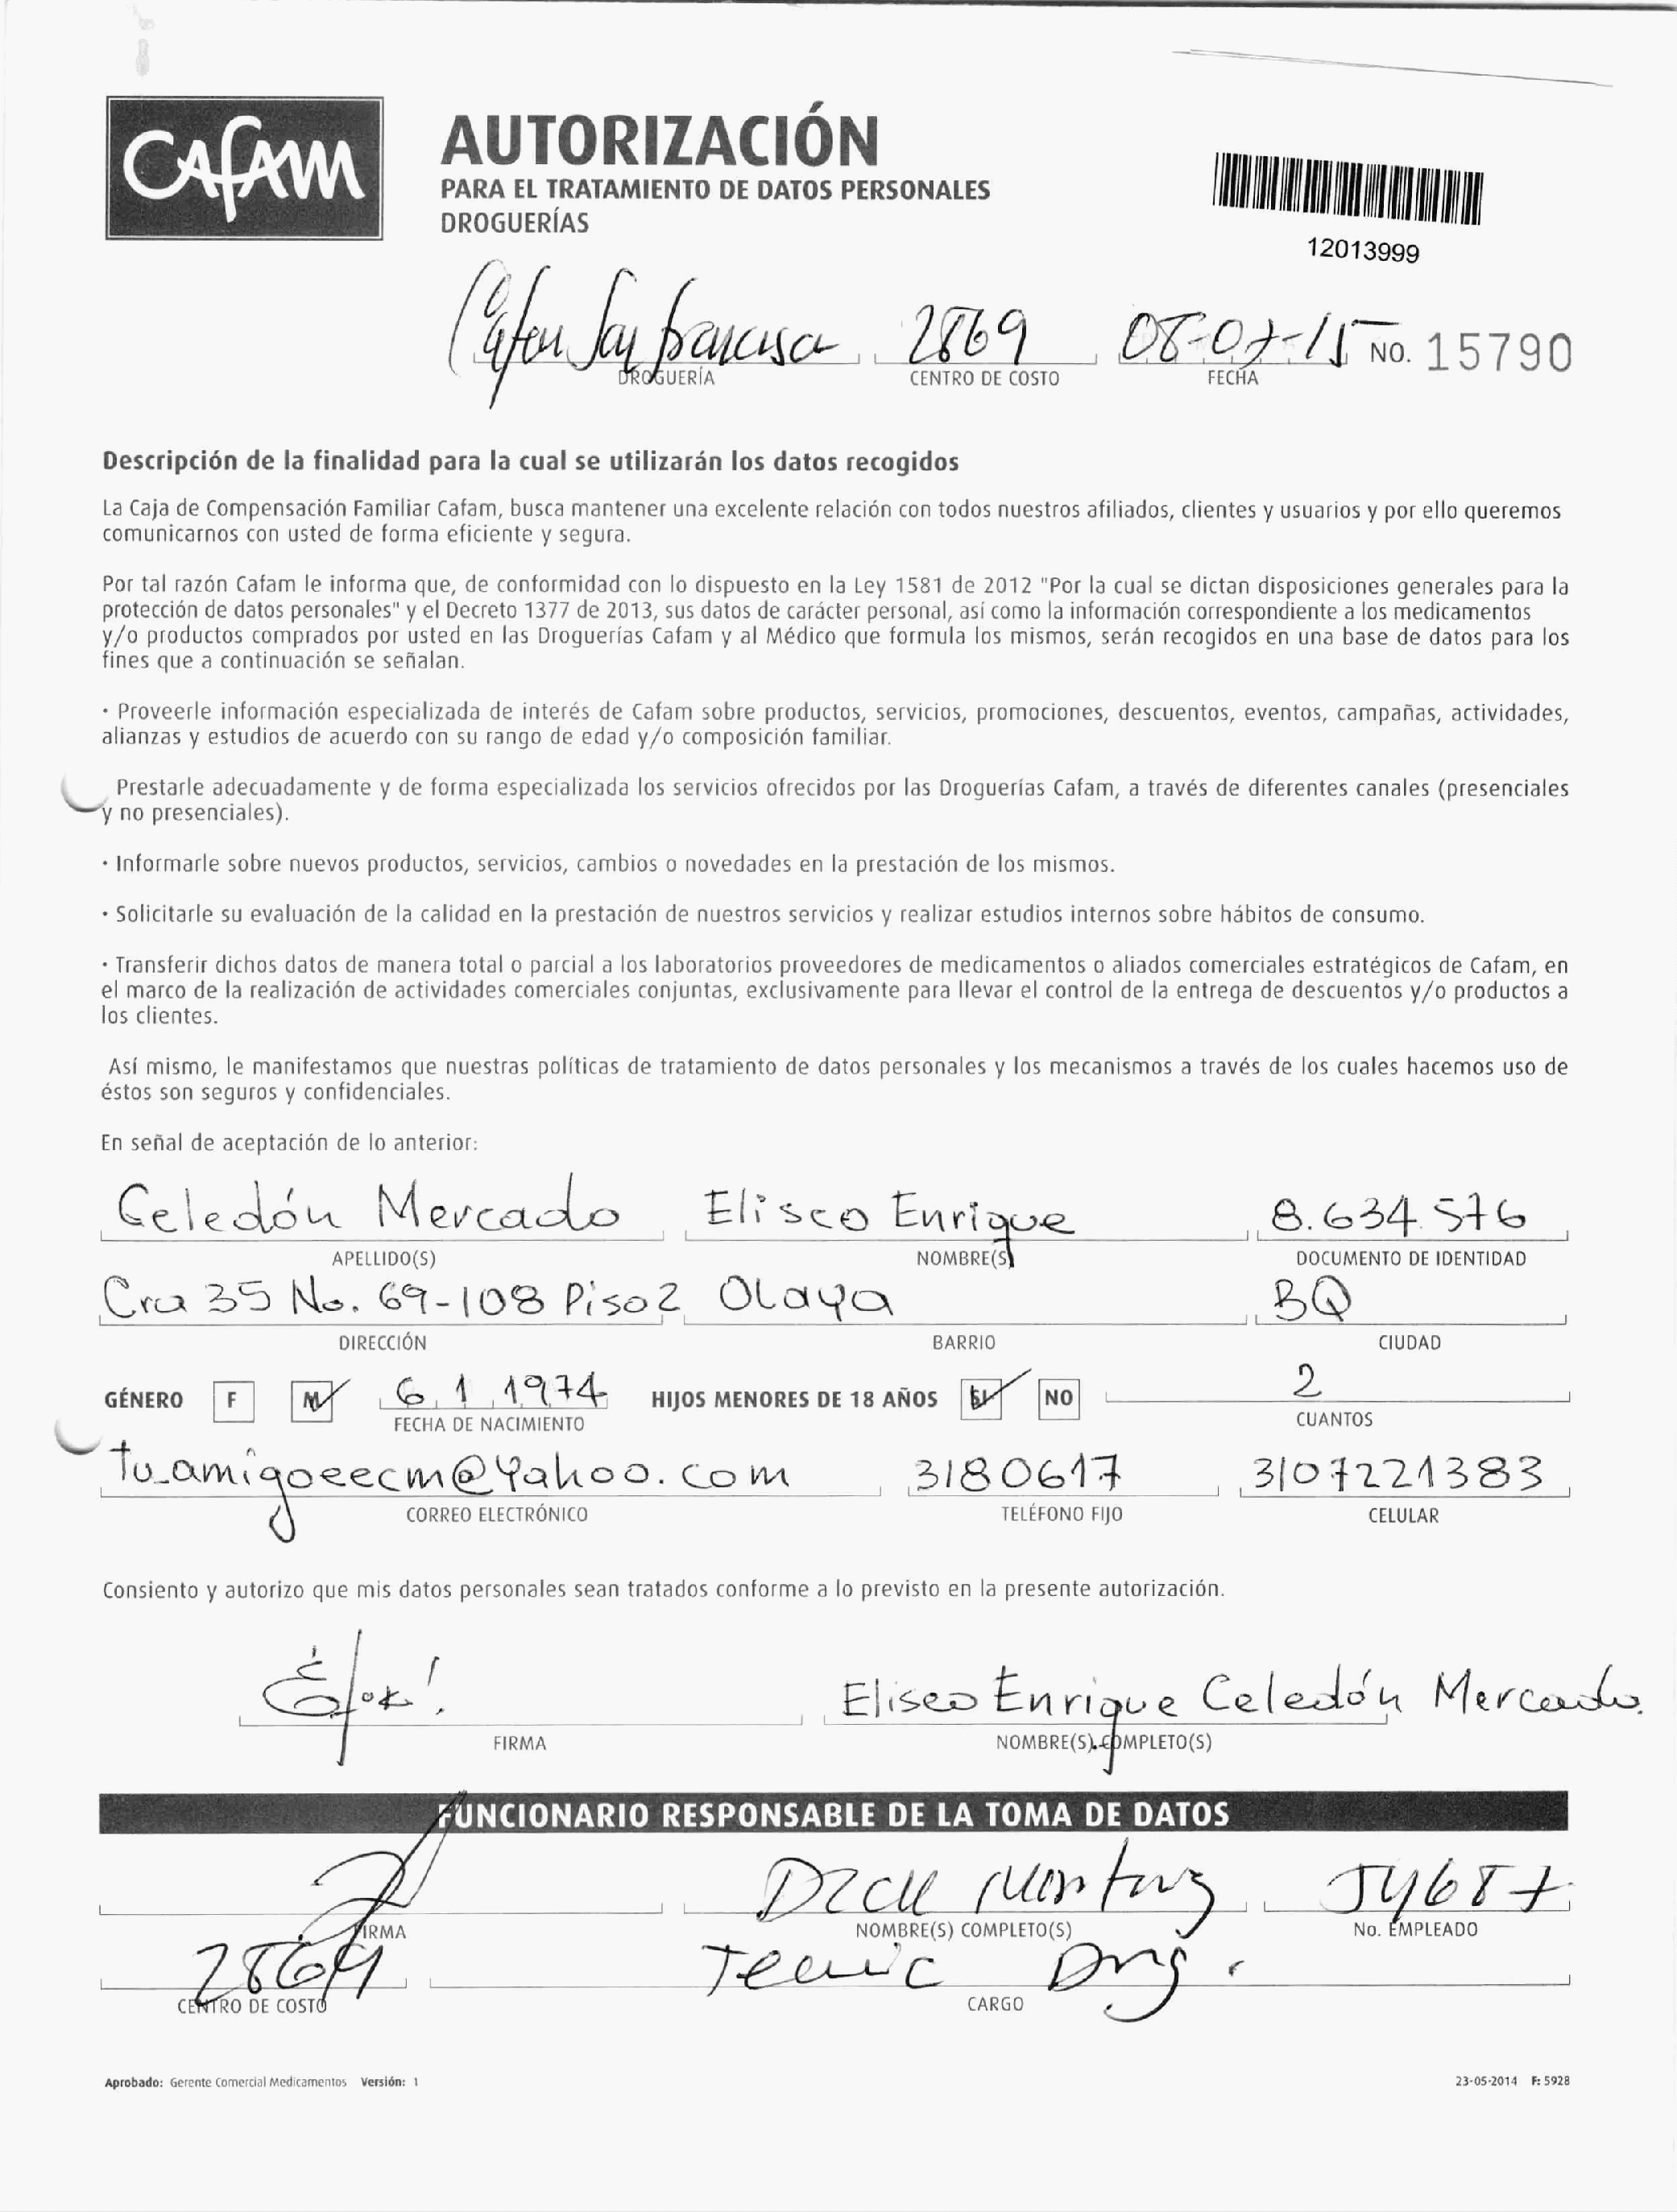 CAFAM
AUTORIZACIÓN
PARA EL TRATAMIENTO DE DATOS PERSONALES
DROGUERÍAS
12013999
Cafam San francisco 2869 08-07-15 NO. 15790
DROGUERÍA CENTRO DE COSTO FECHA
Descripción de la finalidad para la cual se utilizarán los datos recogidos
La Caja de Compensación Familiar Cafam, busca mantener una excelente relación con todos nuestros afiliados, clientes y usuarios y por ello queremos
comunicarnos con usted de forma eficiente y segura.
Por tal razón Cafam le informa que, de conformidad con lo dispuesto en la Ley 1581 de 2012 "Por la cual se dictan disposiciones generales para la
protección de datos personales" y el Decreto 1377 de 2013, sus datos de carácter personal, así como la información correspondiente a los medicamentos
y/o productos comprados por usted en las Droguerías Cafam y al Médico que formula los mismos, serán recogidos en una base de datos para los
fines que a continuación se señalan.
· Proveerle información especializada de interés de Cafam sobre productos, servicios, promociones, descuentos, eventos, campañas, actividades,
alianzas y estudios de acuerdo con su rango de edad y/o composición familiar.
Prestarle adecuadamente y de forma especializada los servicios ofrecidos por las Droguerías Cafam, a través de diferentes canales (presenciales
y no presenciales).
· Informarle sobre nuevos productos, servicios, cambios o novedades en la prestación de los mismos.
· Solicitarle su evaluación de la calidad en la prestación de nuestros servicios y realizar estudios internos sobre hábitos de consumo.
· Transferir dichos datos de manera total o parcial a los laboratorios proveedores de medicamentos o aliados comerciales estratégicos de Cafam, en
el marco de la realización de actividades comerciales conjuntas, exclusivamente para llevar el control de la entrega de descuentos y/o productos a
los clientes.
Así mismo, le manifestamos que nuestras políticas de tratamiento de datos personales y los mecanismos a través de los cuales hacemos uso de
éstos son seguros y confidenciales.
En señal de aceptación de lo anterior:
Celedón Mercado Eliseo Enrique 8.634.576
APELLIDO(S) NOMBRE(S) DOCUMENTO DE IDENTIDAD
Cra 35 No. 69-108 Piso 2 Olaya BQ
DIRECCIÓN BARRIO CIUDAD
GÉNERO F M 6 1 1974 HIJOS MENORES DE 18 AÑOS SI NO 2
FECHA DE NACIMIENTO CUANTOS
tu_amigoeecm@Yahoo.com 3180617 3107221383
CORREO ELECTRÓNICO TELÉFONO FIJO CELULAR
Consiento y autorizo que mis datos personales sean tratados conforme a lo previsto en la presente autorización.
Eliseo Enrique Celedón Mercado.
FIRMA NOMBRE(S) COMPLETO(S)
FUNCIONARIO RESPONSABLE DE LA TOMA DE DATOS
FIRMA NOMBRE(S) COMPLETO(S) No. EMPLEADO
2869 Drog.
CENTRO DE COSTO CARGO
Aprobado: Gerente Comercial Medicamentos Versión: 1 23-05-2014 F: 5928